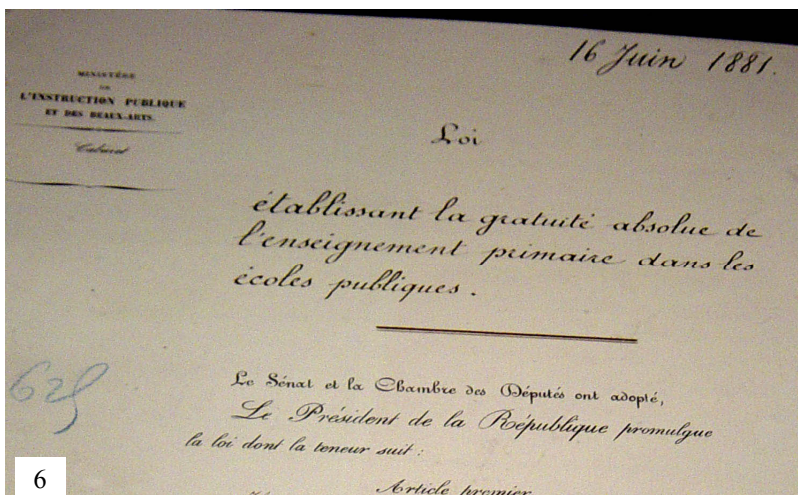 16 Juin 1881.
MINISTÈRE
DE
L'INSTRUCTION PUBLIQUE
ET DES BEAUX-ARTS.
Cabinet
Loi
établissant la gratuité absolue de
l'enseignement primaire dans les
écoles publiques.
625
Le Sénat et la Chambre des Députés ont adopté,
Le Président de la République promulgue
la loi dont la teneur suit :
Article premier
6